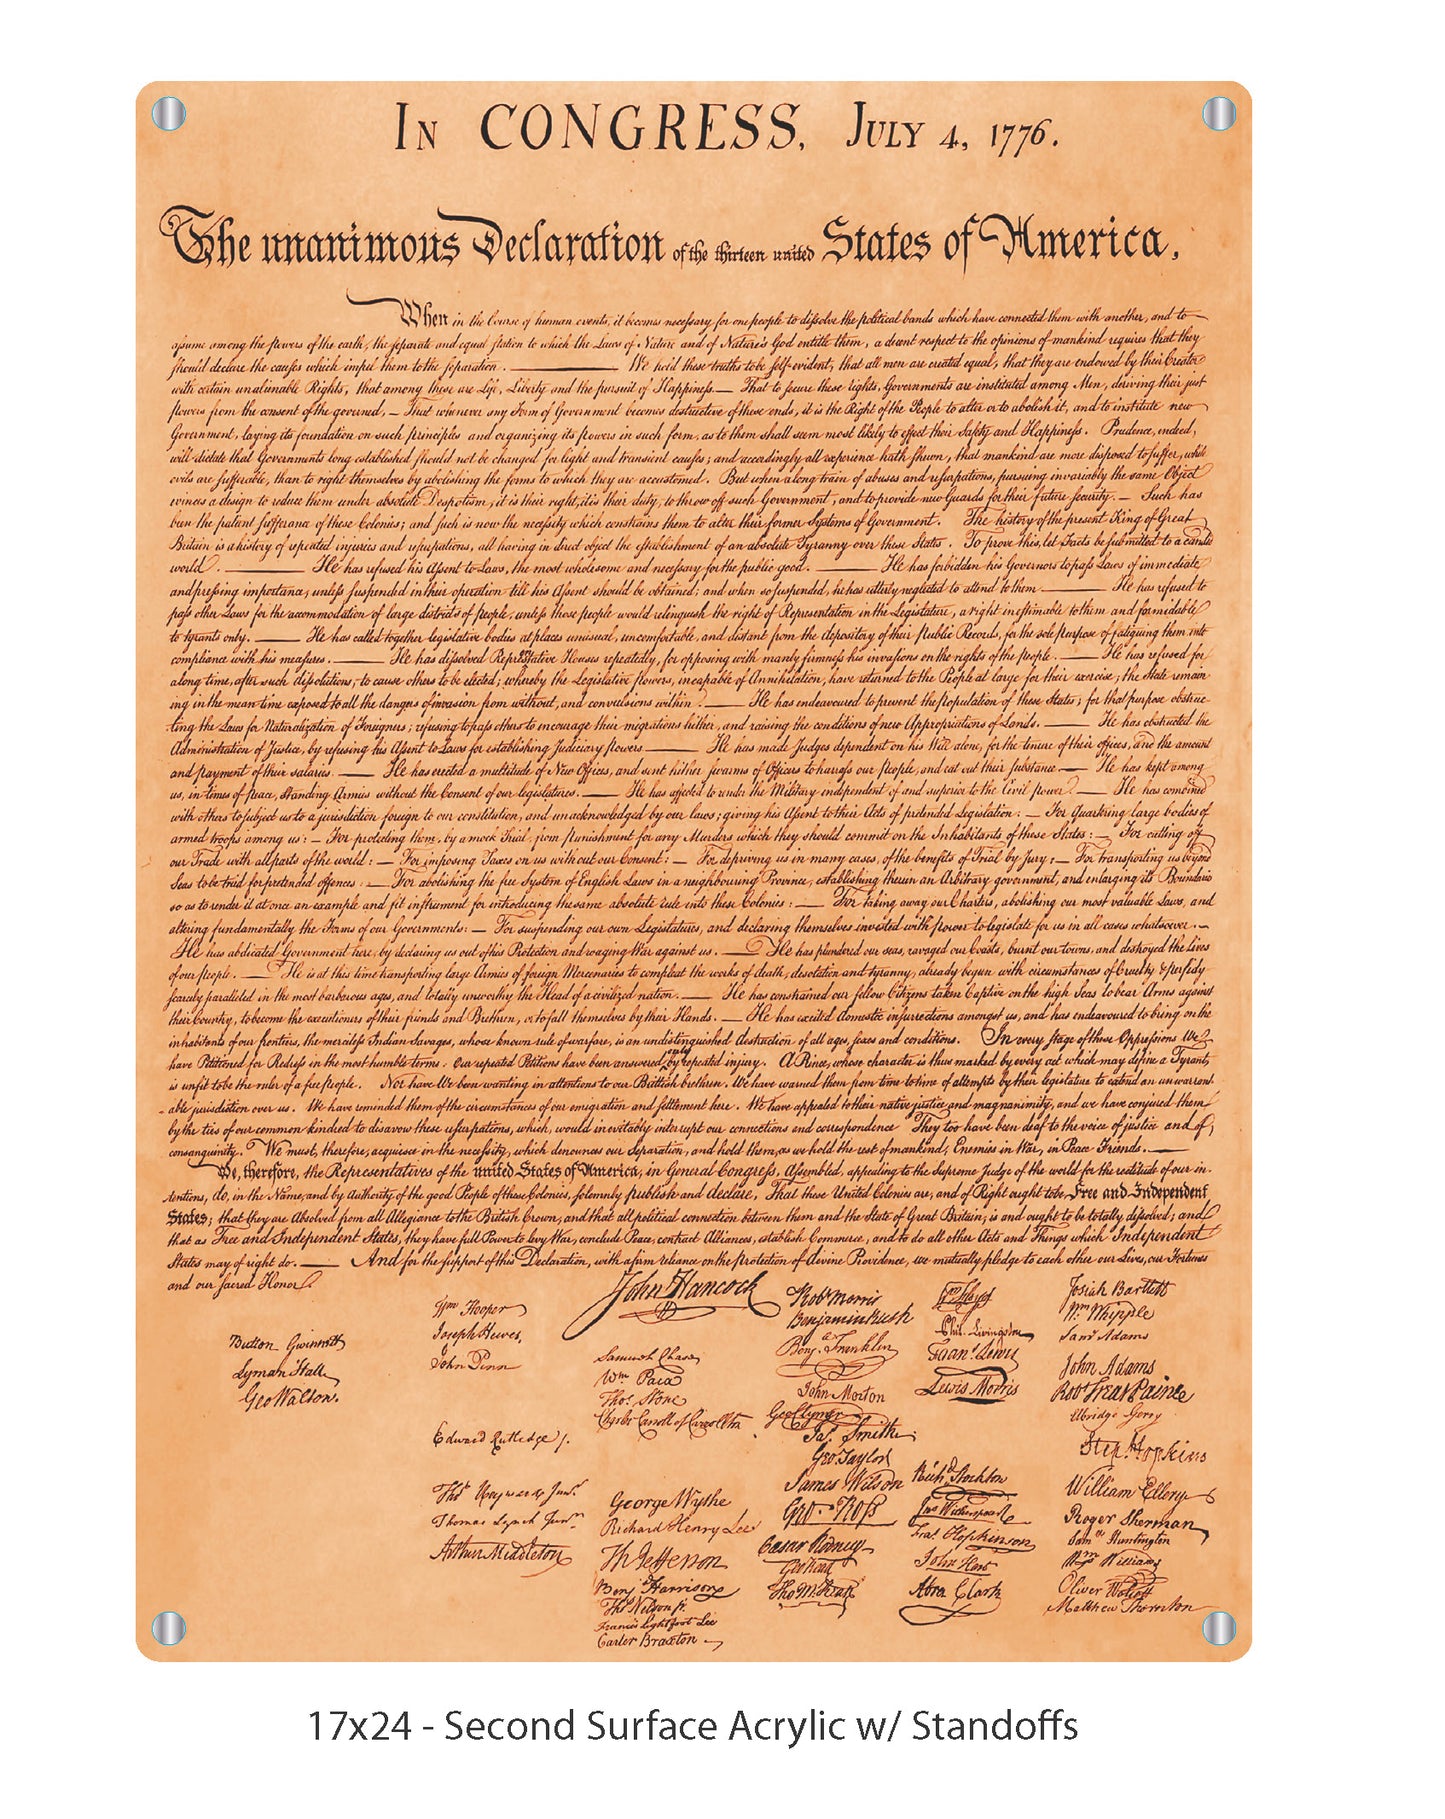 In CONGRESS, July 4, 1776.
The unanimous Declaration of the thirteen united States of America,
When in the Course of human events, it becomes necessary for one people to dissolve the political bands which have connected them with another, and to
assume among the powers of the earth, the separate and equal station to which the Laws of Nature and of Nature's God entitle them, a decent respect to the opinions of mankind requires that they
should declare the causes which impel them to the separation. — We hold these truths to be self-evident, that all men are created equal, that they are endowed by their Creator
with certain unalienable Rights, that among these are Life, Liberty and the pursuit of Happiness.— That to secure these rights, Governments are instituted among Men, deriving their just
powers from the consent of the governed, — That whenever any Form of Government becomes destructive of these ends, it is the Right of the People to alter or to abolish it, and to institute new
Government, laying its foundation on such principles and organizing its powers in such form, as to them shall seem most likely to effect their Safety and Happiness. Prudence, indeed,
will dictate that Governments long established should not be changed for light and transient causes; and accordingly all experience hath shewn, that mankind are more disposed to suffer, while
evils are sufferable, than to right themselves by abolishing the forms to which they are accustomed. But when a long train of abuses and usurpations, pursuing invariably the same Object
evinces a design to reduce them under absolute Despotism, it is their right, it is their duty, to throw off such Government, and to provide new Guards for their future security.— Such has
been the patient sufferance of these Colonies; and such is now the necessity which constrains them to alter their former Systems of Government. The history of the present King of Great
Britain is a history of repeated injuries and usurpations, all having in direct object the establishment of an absolute Tyranny over these States. To prove this, let Facts be submitted to a candid
world. — He has refused his Assent to Laws, the most wholesome and necessary for the public good. — He has forbidden his Governors to pass Laws of immediate
and pressing importance, unless suspended in their operation till his Assent should be obtained; and when so suspended, he has utterly neglected to attend to them — He has refused to
pass other Laws for the accommodation of large districts of people, unless those people would relinquish the right of Representation in the Legislature, a right inestimable to them and formidable
to tyrants only. — He has called together legislative bodies at places unusual, uncomfortable, and distant from the depository of their Public Records, for the sole purpose of fatiguing them into
compliance with his measures. — He has dissolved Representative Houses repeatedly, for opposing with manly firmness his invasions on the rights of the people. — He has refused for
a long time, after such dissolutions, to cause others to be elected; whereby the Legislative powers, incapable of Annihilation, have returned to the People at large for their exercise; the State remain
ing in the mean time exposed to all the dangers of invasion from without, and convulsions within. — He has endeavoured to prevent the population of these States; for that purpose obstruc-
ting the Laws for Naturalization of Foreigners; refusing to pass others to encourage their migrations hither, and raising the conditions of new Appropriations of Lands. — He has obstructed the
Administration of Justice, by refusing his Assent to Laws for establishing Judiciary powers — He has made Judges dependent on his Will alone, for the tenure of their offices, and the amount
and payment of their salaries. — He has erected a multitude of New Offices, and sent hither swarms of Officers to harrass our people, and eat out their substance — He has kept among
us, in times of peace, Standing Armies without the Consent of our legislatures. — He has affected to render the Military independent of and superior to the Civil power. — He has combined
with others to subject us to a jurisdiction foreign to our constitution, and unacknowledged by our laws; giving his Assent to their Acts of pretended Legislation: — For Quartering large bodies of
armed troops among us: — For protecting them, by a mock Trial, from punishment for any Murders which they should commit on the Inhabitants of these States: — For cutting off
our Trade with all parts of the world: — For imposing Taxes on us without our Consent: — For depriving us in many cases, of the benefits of Trial by Jury: — For transporting us beyond
Seas to be tried for pretended offences: — For abolishing the free System of English Laws in a neighbouring Province, establishing therein an Arbitrary government, and enlarging its Boundaries
so as to render it at once an example and fit instrument for introducing the same absolute rule into these Colonies: — For taking away our Charters, abolishing our most valuable Laws, and
altering fundamentally the Forms of our Governments: — For suspending our own Legislatures, and declaring themselves invested with power to legislate for us in all cases whatsoever. —
He has abdicated Government here, by declaring us out of his Protection and waging War against us. — He has plundered our seas, ravaged our Coasts, burnt our towns, and destroyed the lives
of our people. — He is at this time transporting large Armies of foreign Mercenaries to compleat the works of death, desolation and tyranny, already begun with circumstances of Cruelty & perfidy
scarcely paralleled in the most barbarous ages, and totally unworthy the Head of a civilized nation. — He has constrained our fellow Citizens taken Captive on the high Seas to bear Arms against
their Country, to become the executioners of their friends and Brethren, or to fall themselves by their Hands. — He has excited domestic insurrections amongst us, and has endeavoured to bring on the
inhabitants of our frontiers, the merciless Indian Savages, whose known rule of warfare, is an undistinguished destruction of all ages, sexes and conditions. In every stage of these Oppressions We
have Petitioned for Redress in the most humble terms: Our repeated Petitions have been answered only by repeated injury. A Prince, whose character is thus marked by every act which may define a Tyrant,
is unfit to be the ruler of a free people. Nor have We been wanting in attentions to our Brittish brethren. We have warned them from time to time of attempts by their legislature to extend an unwarrant-
able jurisdiction over us. We have reminded them of the circumstances of our emigration and settlement here. We have appealed to their native justice and magnanimity, and we have conjured them
by the ties of our common kindred to disavow these usurpations, which, would inevitably interrupt our connections and correspondence They too have been deaf to the voice of justice and of
consanguinity. We must, therefore, acquiesce in the necessity, which denounces our Separation, and hold them, as we hold the rest of mankind, Enemies in War, in Peace Friends. —
We, therefore, the Representatives of the united States of America, in General Congress, Assembled, appealing to the Supreme Judge of the world for the rectitude of our in-
tentions, do, in the Name, and by Authority of the good People of these Colonies, solemnly publish and declare, That these United Colonies are, and of Right ought to be Free and Independent
States; that they are Absolved from all Allegiance to the British Crown, and that all political connection between them and the State of Great Britain, is and ought to be totally dissolved; and
that as Free and Independent States, they have full Power to levy War, conclude Peace, contract Alliances, establish Commerce, and to do all other Acts and Things which Independent
States may of right do. — And for the support of this Declaration, with a firm reliance on the Protection of divine Providence, we mutually pledge to each other our Lives, our Fortunes
and our sacred Honor.
Button Gwinnett
Lyman Hall
Geo Walton.
Wm Hooper
Joseph Hewes,
John Penn
Edward Rutledge /.
Thos Heyward Junr.
Thomas Lynch Junr.
Arthur Middleton
John Hancock
Samuel Chase
Wm Paca
Thos. Stone
Charles Carroll of Carrollton
George Wythe
Richard Henry Lee
Th Jefferson
Benj Harrison
Thos Nelson jr.
Francis Lightfoot Lee
Carter Braxton
Robt Morris
Benjamin Rush
Benj. Franklin
John Morton
Geo Clymer
Jas. Smith
Geo. Taylor
James Wilson
Geo. Ross
Caesar Rodney
Geo Read
Tho M:Kean
Wm Floyd
Phil. Livingston
Frans. Lewis
Lewis Morris
Richd. Stockton
Jno Witherspoon
Fras. Hopkinson
John Hart
Abra Clark
Josiah Bartlett
Wm Whipple
Saml Adams
John Adams
Robt Treat Paine
Elbridge Gerry
Step. Hopkins
William Ellery
Roger Sherman
Saml Huntington
Wm Williams
Oliver Wolcott
Matthew Thornton
17x24 - Second Surface Acrylic w/ Standoffs